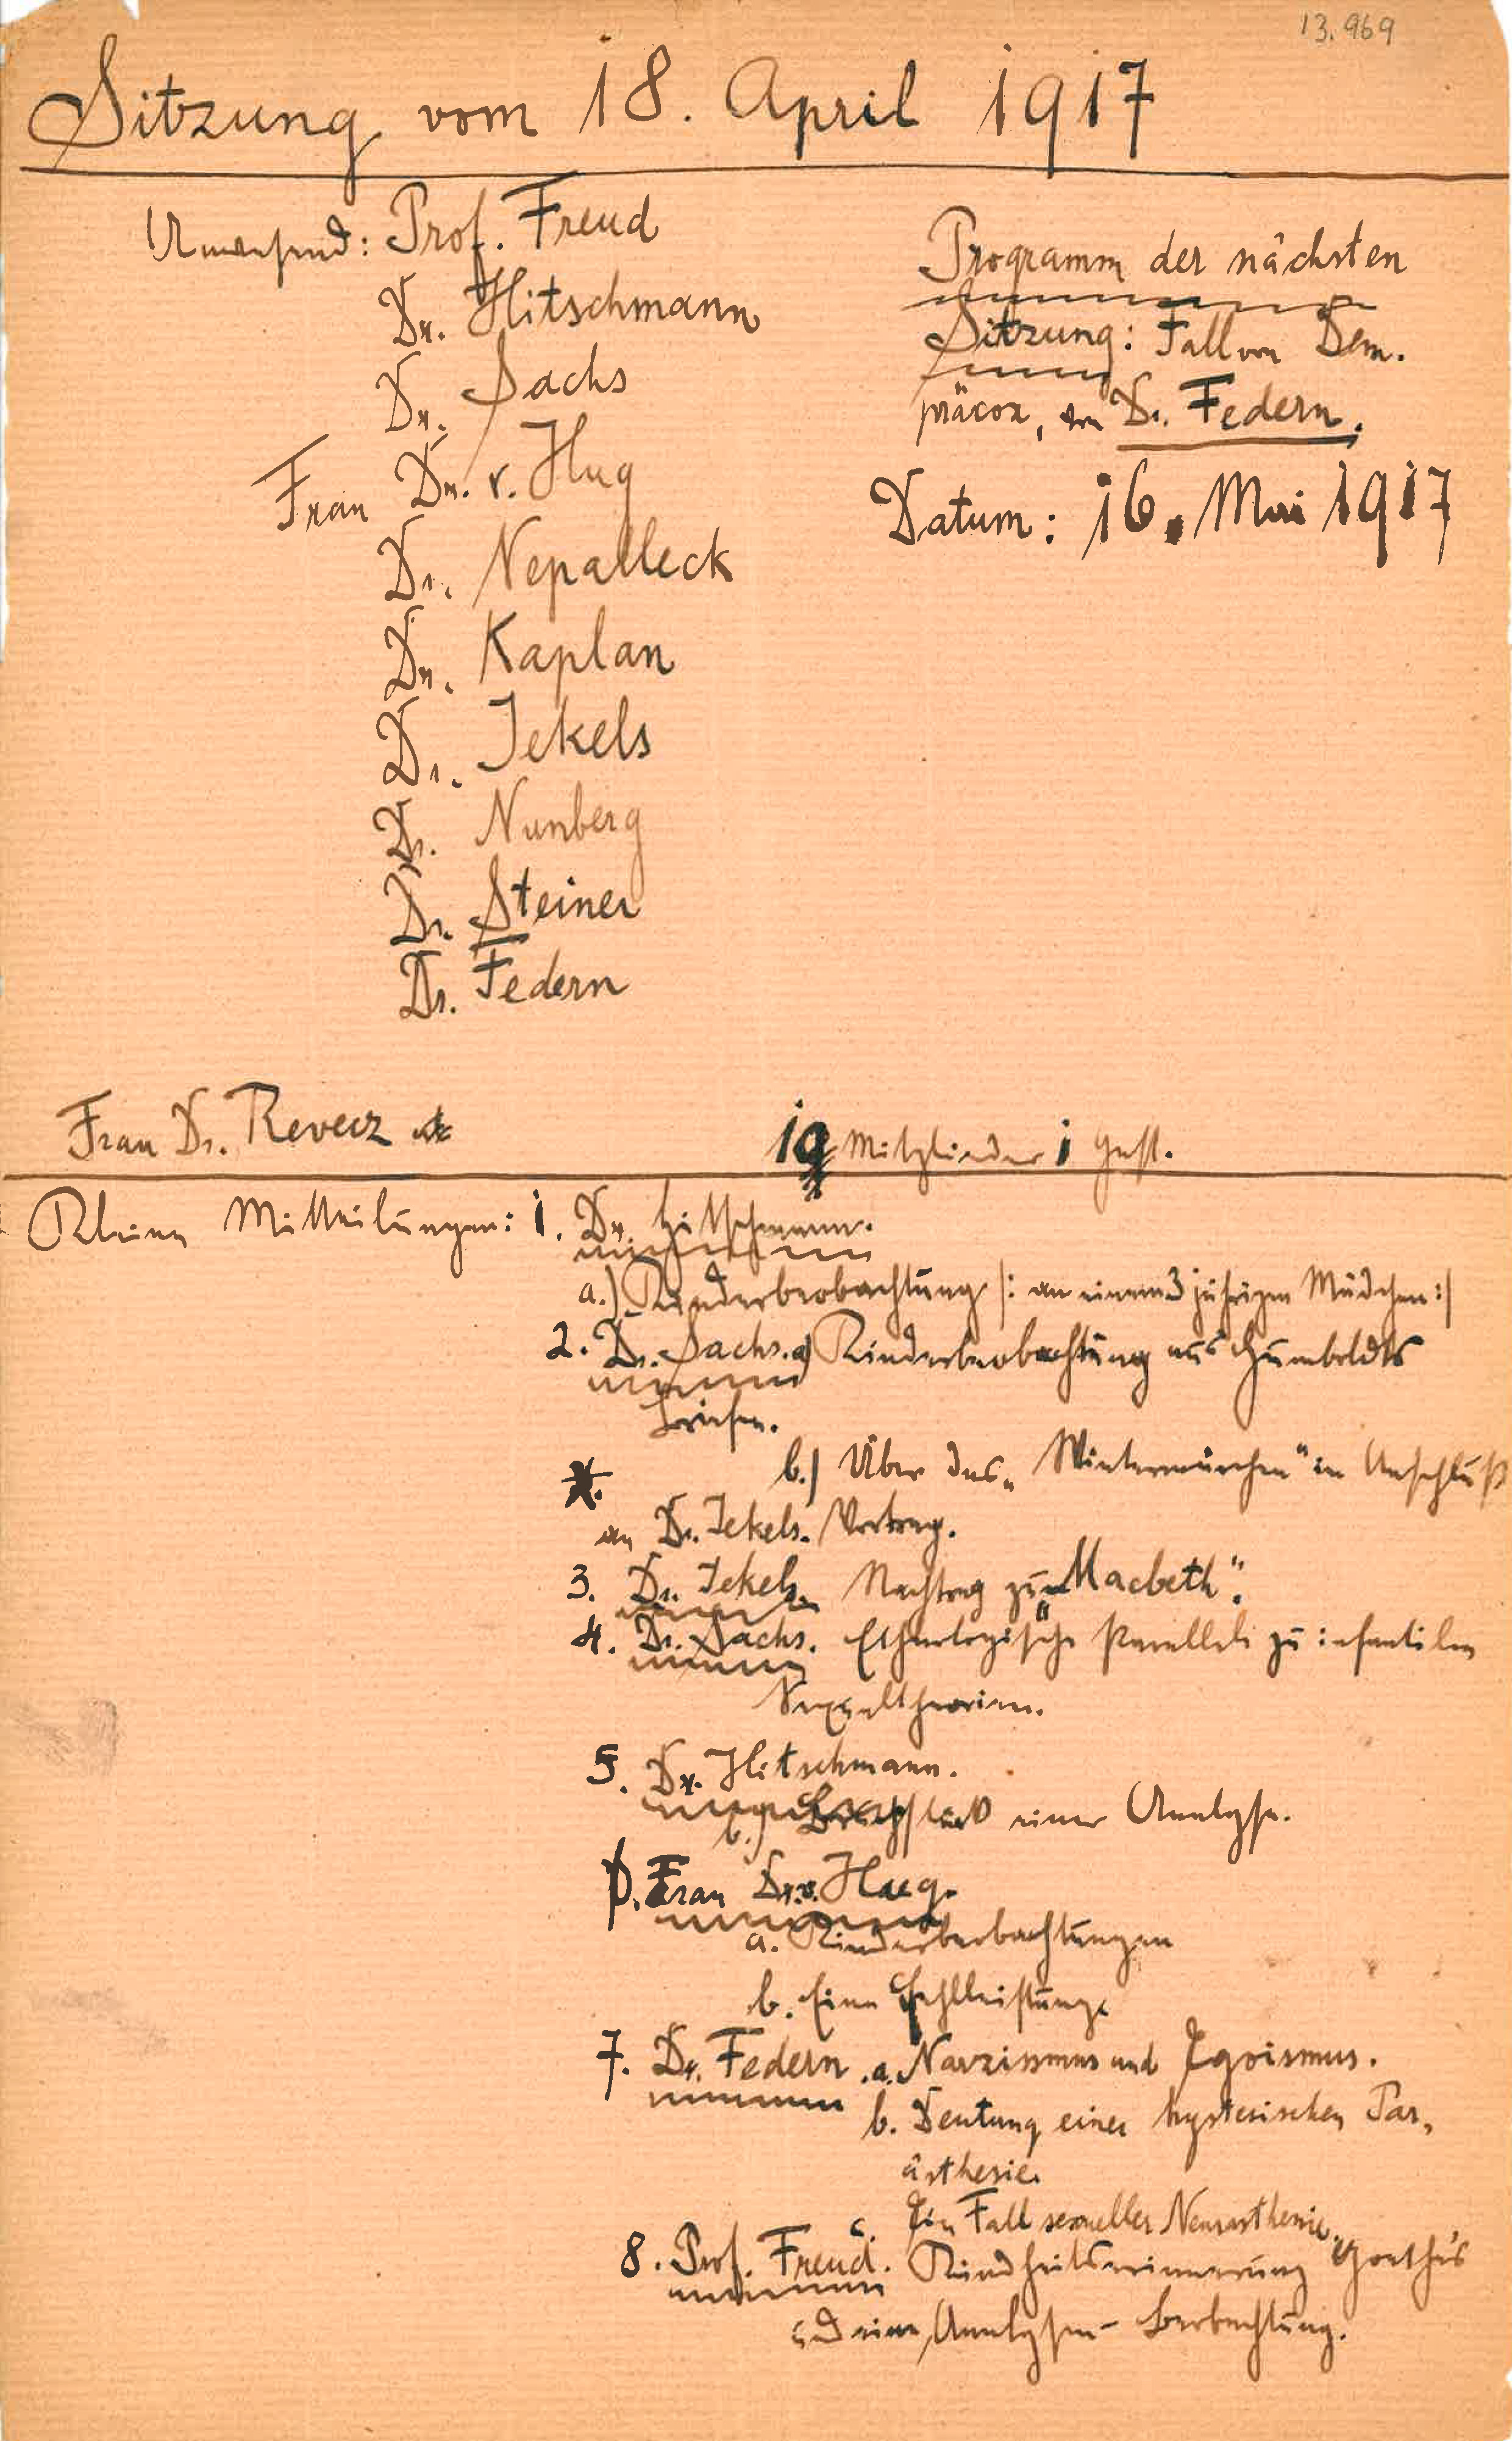 13.969
Sitzung vom 18. April 1917
Anwesend: Prof. Freud
Dr. Hitschmann
Dr. Sachs
Frau Dr. v. Hug
Dr. Nepalleck
Dr. Kaplan
Dr. Jekels
Dr. Nunberg
Dr. Steiner
Dr. Federn
Programm der nächsten
Sitzung: Fall von Dem.
präcox, von Dr. Federn.
Datum: 16. Mai 1917
Frau Dr. Revecz
10 Mitglieder 1 Gast.
Kleine Mitteilungen: 1. Dr. Hitschmann.
a.) Kinderbeobachtung |: an einem 3 jährigen Mädchen :|
2. Dr. Sachs. a) Kinderbeobachtung aus Humboldts
Briefen.
b.) Über das „Wintermärchen" im Anschluß
an Dr. Jekels. Vortrag.
3. Dr. Jekels. Nachtrag zu „Macbeth".
4. Dr. Sachs. Ethnologische Parallele zu infantilen
Sexualtheorien.
5. Dr. Hitschmann.
b.) Bruchstück einer Analyse.
6. Frau Dr. v. Hug.
a. Kinderbeobachtungen
b. Eine Fehlleistung.
7. Dr. Federn. a. Narzissmus und Egoismus.
b. Deutung einer hysterischen Par-
ästhesie.
c. Ein Fall sexueller Neurasthenie.
8. Prof. Freud. Kindheitserinnerung Goethe's
und eine Analysen-Beobachtung.